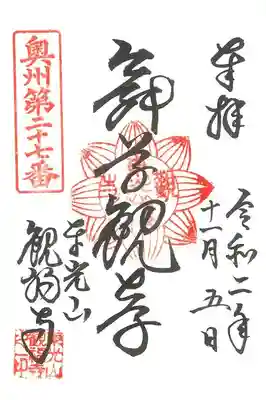 奉拝
令和二年
十一月五日
奥州第二十七番
舞草観音
東光山
観福寺